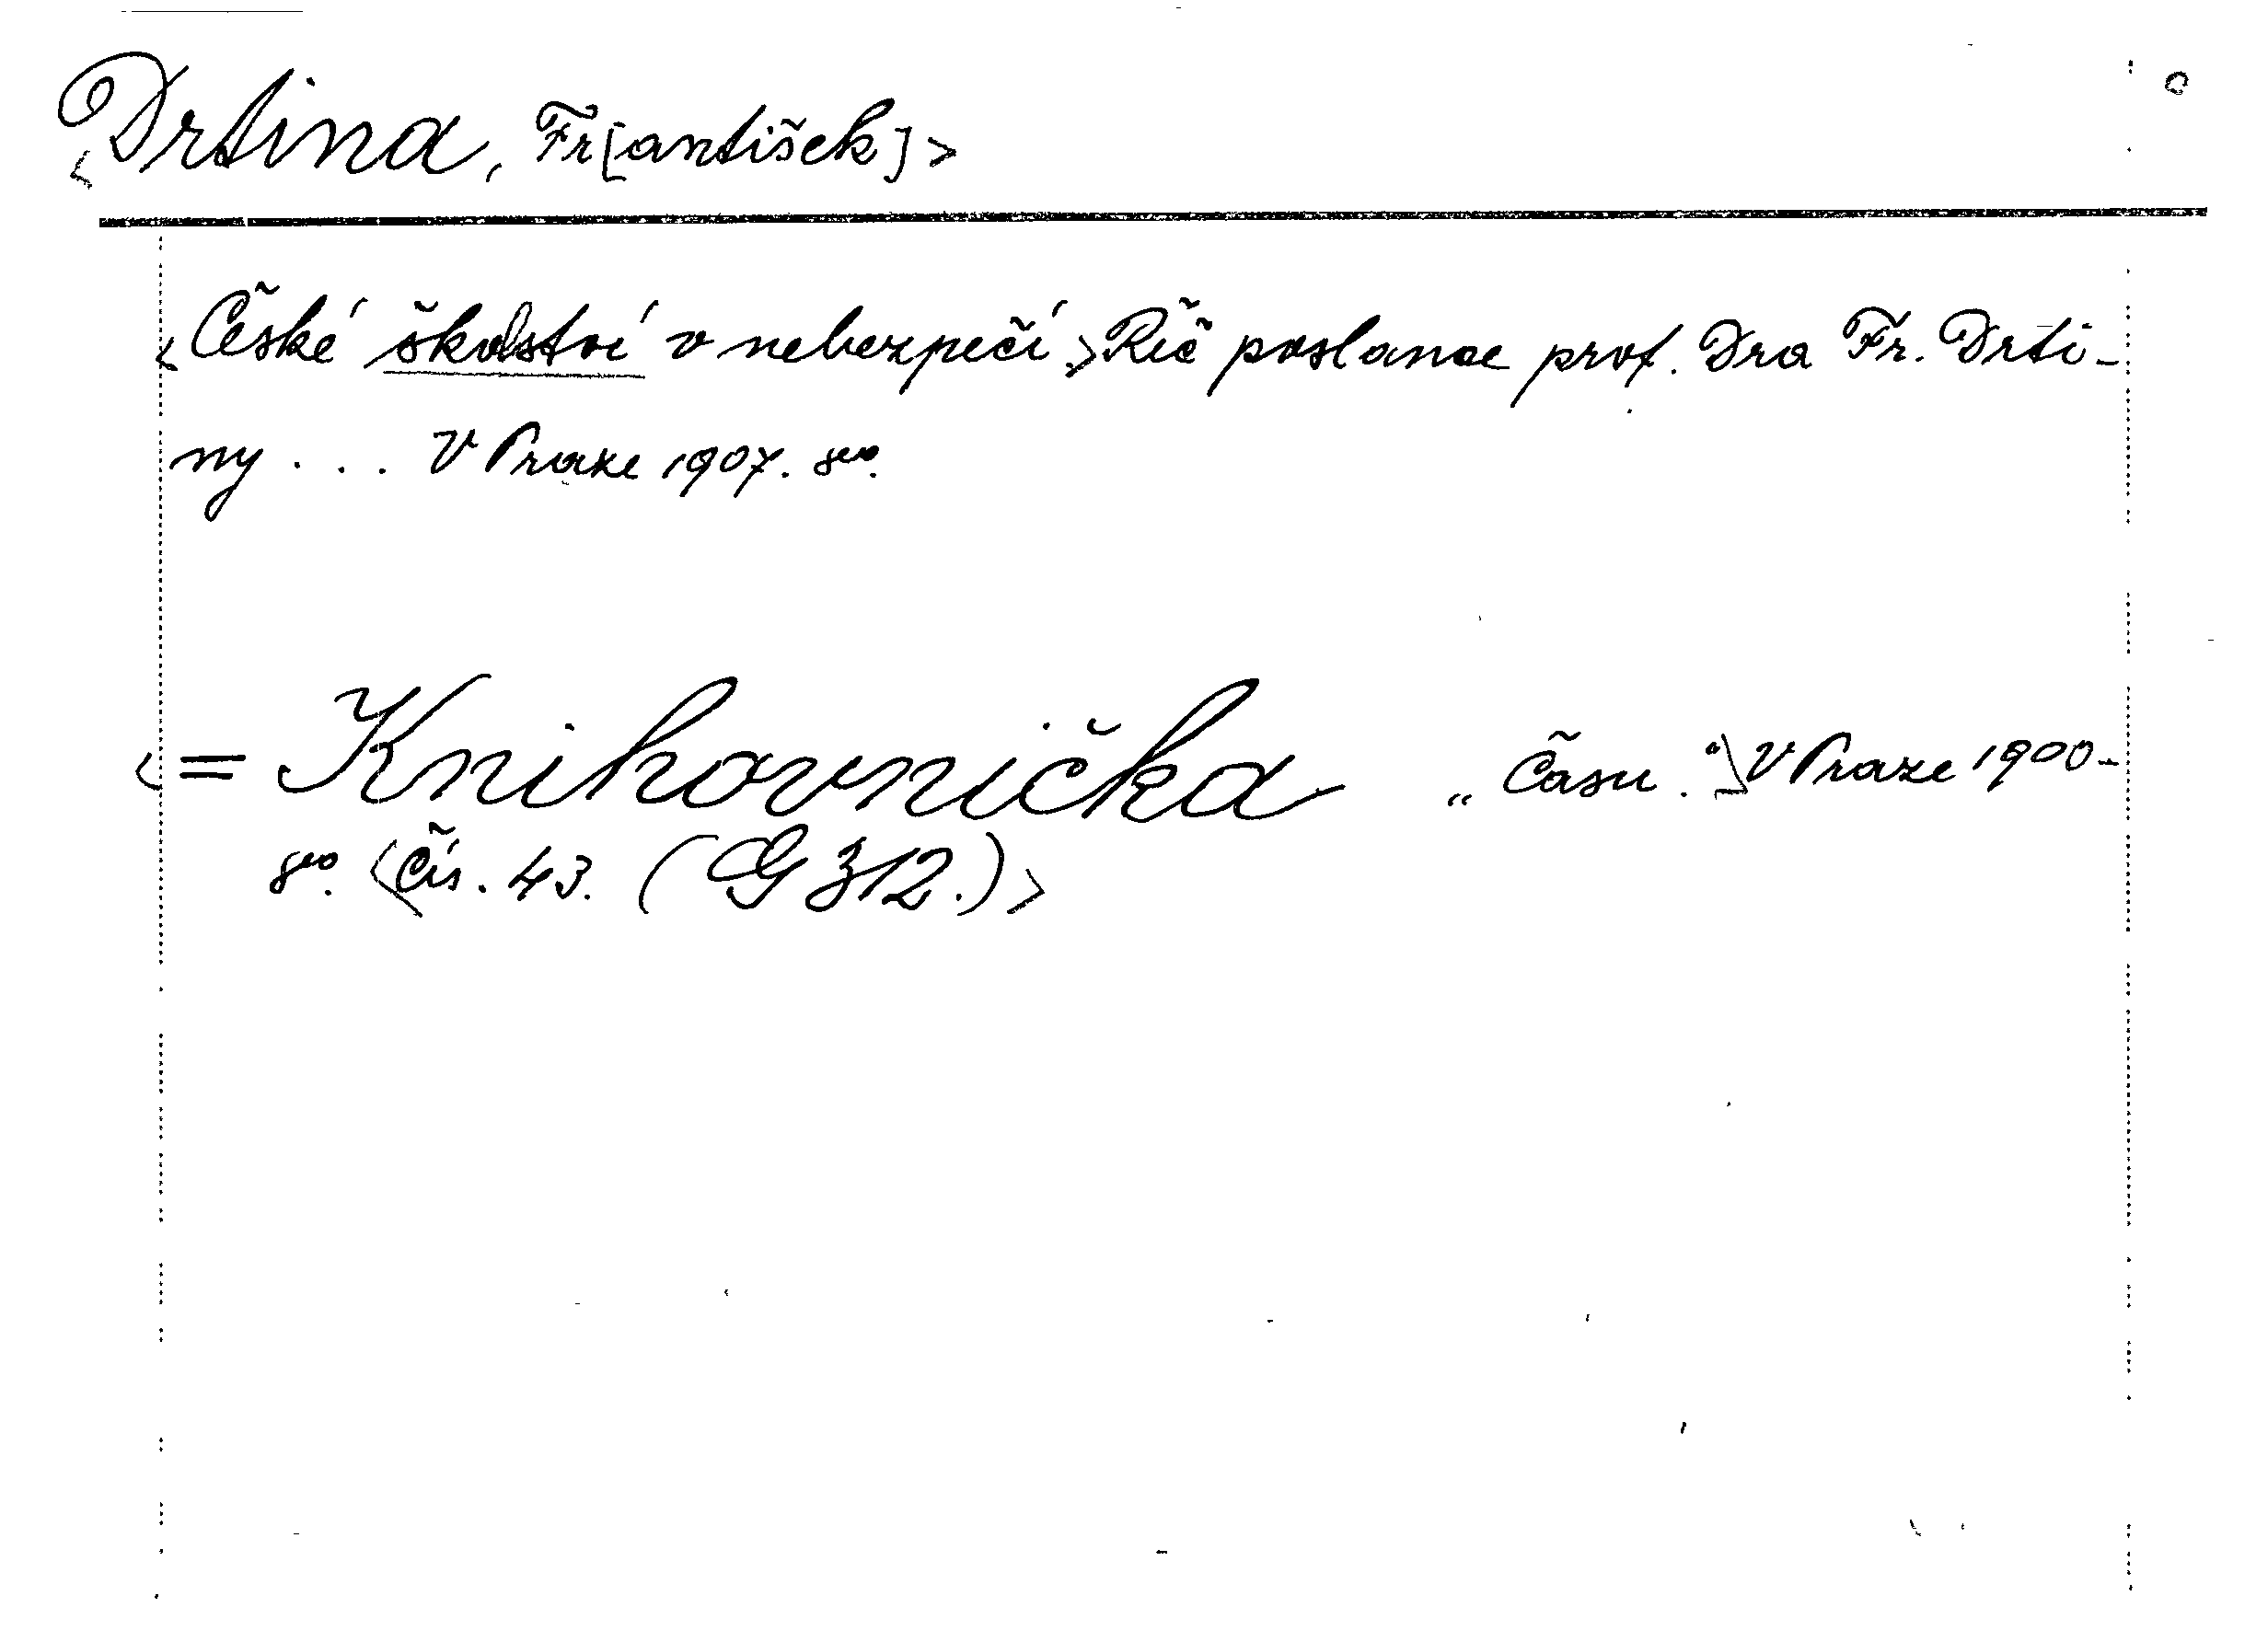 <Drtina, Fr[antišek]>
<České školství v nebezpečí.> Řeč poslance prof. Dra Fr. Drti-
ny ... V Praze 1907. 8vo.
<= Knihovnička „Času."> V Praze 1900-
8vo. <Čís. 43. (G Z 12.)>